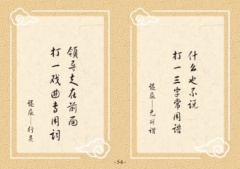 什么也不说
打一三字常用语
谜底—无所谓
领导走在前面
打一戏曲专用词
谜底—行头
-54-